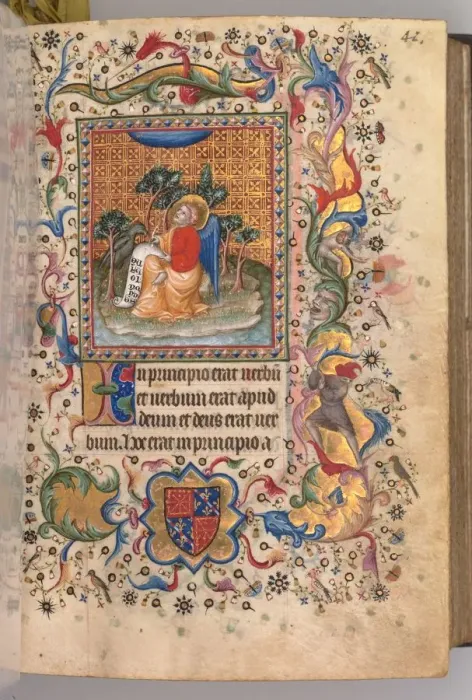 42
In principio erat uerbū
et uerbum erat apud
deum et deus erat uer
bum. Hoc erat in principio a